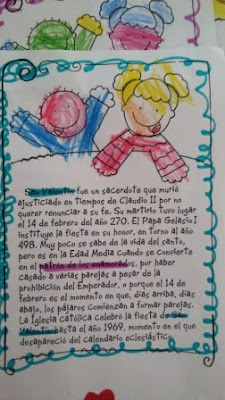 San Valentín fue un sacerdote que murió
ajusticiado en tiempos de Claudio II por no
querer renunciar a su fe. Su martirio tuvo lugar
el 14 de febrero del año 270. El Papa Gelasio I
instituye la fiesta en su honor, en torno al año
498. Muy poco se sabe de la vida del santo,
pero es en la Edad Media cuando se convierte
en el patrón de los enamorados, por haber
casado a varias parejas a pesar de la
prohibición del Emperador, o porque el 14 de
febrero es el momento en que, días arriba, días
abajo, los pájaros comienzan a formar parejas.
La Iglesia Católica celebró la fiesta de San
Valentín hasta el año 1969, momento en el que
desapareció del calendario eclesiástico.